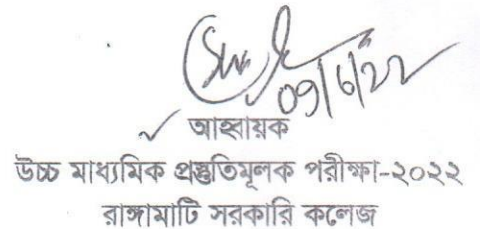 ০৭/৬/২২
আহ্বায়ক
উচ্চ মাধ্যমিক প্রস্তুতিমূলক পরীক্ষা-২০২২
রাঙ্গামাটি সরকারি কলেজ